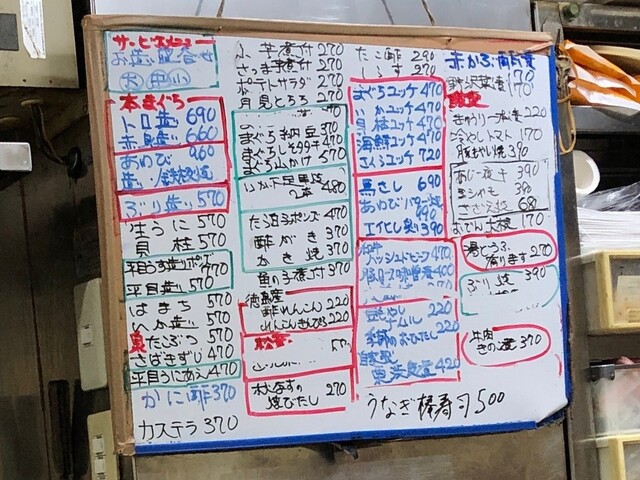 サービスメニュー
お造り盛合せ
大 中 小
本まぐろ
トロ造り 690
赤身造り 660
あわび 960
造り・鉄板焼
ぶり造り 570
生うに 570
貝柱 570
平目うす造りポン酢 770
平目造り 570
はまち 570
いか造り 570
たこぶつ 570
さばきずし 470
平目うにあえ 470
かに酢 370
カステラ 370
小芋煮付 270
さつま芋煮 270
ポテトサラダ 270
月見とろろ 270
まぐろ納豆 370
まぐろ山かけ 570
いか下足黒焼 480
たこぶつポンズ 470
酢がき 370
かき焼 370
魚の子煮付 370
徳島産
酢れんこん 220
れんこんきんぴら 220
松茸
水なすの
焼びたし 270
たこ酢 290
しらす 270
まぐろユッケ 470
いかユッケ 470
貝柱ユッケ 470
海鮮ユッケ 470
さくらユッケ 720
馬さし 690
あわびバター焼 990
エイヒレ炙り 390
季節のおひたし 220
自家製
420
うなぎ棒寿司 500
赤かぶ
170
野沢菜漬 170
きゅうり一本漬 220
冷やしトマト 170
豚もやし焼 390
あじ一夜干 390
生シシャモ 390
さざえ焼 680
おでん 大根 170
湯どうふ
有ります 270
ぶり焼 390
牛肉
きの 370